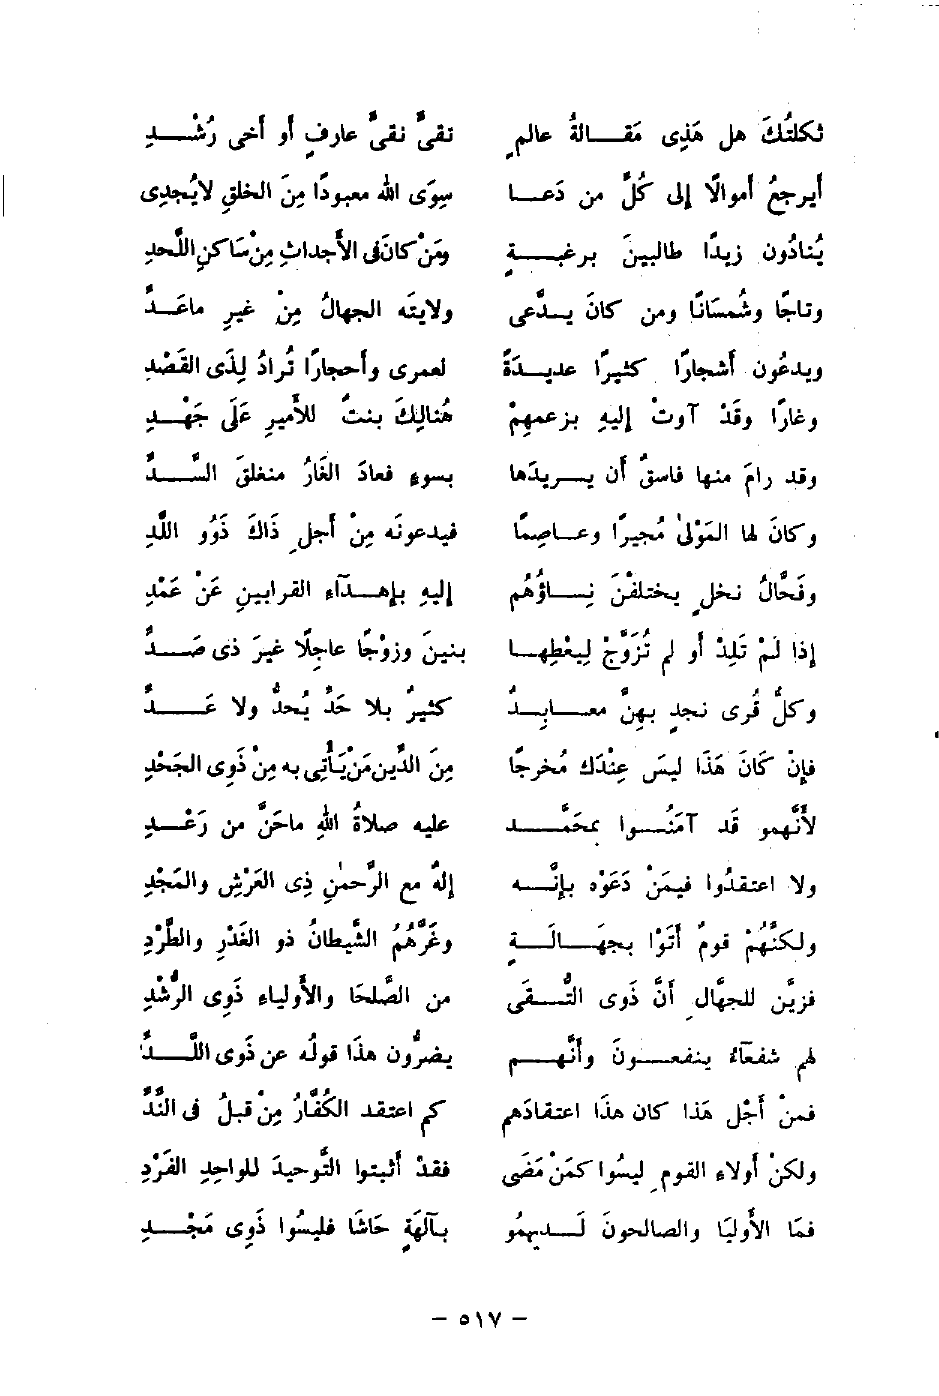 ثكلتُكَ هل هَذِى مَقَالةُ عالمٍ نقىٌّ نقىٌّ عارفٍ أو أخى رُشْدِ
أيرجعُ أموالًا إلى كُلِّ من دَعَا سِوَى الله معبودًا مِنَ الخلقِ لايُجدِى
يُنادُون زيدًا طالبينَ برغبةٍ ومَنْ كانَ فى الأجداثِ مِنْ سَاكنِ اللَّحدِ
وتاجًا وشُمسَانًا ومن كانَ يدَّعى ولايتَه الجهالُ مِنْ غيرِ ماعَدِّ
ويدعُون أشجارًا كثيرًا عديدَةً لعمرى وأحجارًا تُرادُ لِذَى القَصْدِ
وغارًا وقَدْ آوتْ إليهِ بزعمهِمْ هُنالِكَ بنتٌ للأميرِ عَلَى جَهْدِ
وقد رامَ منها فاسقٌ أن يريدَها بسوءٍ فعادَ الغَارُ منغلقَ السَّدِّ
وكانَ لها المَوْلىٰ مُجيرًا وعاصِمًا فيدعونَه مِنْ أجلِ ذَاكَ ذَوُو اللَّدِ
وفَحَّالُ نخلٍ يختلفْنَ نِساؤُهُم إليهِ بإهدآءِ القرابينِ عَنْ عَمْدِ
إذا لَمْ تَلِدْ أو لم تُزَوَّجْ لِيعْطِهَا بنينَ وزوْجًا عاجِلًا غيرَ ذى صَدِّ
وكلُّ قُرى نجدٍ بهِنَّ معابِدُ كثيرٌ بلا حَدٍّ يُحدُّ ولا عَدِّ
فإنْ كَانَ هَذَا ليسَ عِنْدَك مُخرجًا مِنَ الدِّين مَنْ يَأتِى به مِنْ ذَوِى الجَحْدِ
لأنَّهمو قَد آمَنُوا بمحَمَّد عليه صلاةُ اللهِ ماحَنَّ من رَعْدِ
ولا اعتقدُوا فيمَنْ دَعَوْه بإنَّه إلهٌ مع الرَّحمٰنِ ذِى العَرْشِ والمَجْدِ
ولكنَّهُمْ قومٌ أتَوْا بجهَالَةٍ وغَرَّهُمُ الشَّيطانُ ذو الغَدْرِ والطَّرْدِ
فزيَّن للجهَّالِ أنَّ ذَوى التُّقَى من الصُّلحَا والأولياءِ ذَوِى الرُّشْدِ
لهم شفعآءُ ينفعونَ وأنَّهم يضرُّون هذَا قولُه عن ذَوى اللَّدِّ
فمنْ أجْل هَذا كان هذَا اعتقادَهم كم اعتقد الكُفَّارُ مِنْ قبلُ فى النِّدِّ
ولكنْ أولاءِ القومِ ليسُوا كمَنْ مَضَى فقدْ أثبتوا التَّوحيدَ للواحِدِ الفَرْدِ
فمَا الأوليَا والصالحونَ لَديهمُو بآلهَةٍ حَاشَا فليسُوا ذَوِى مَجْدِ
– ٥١٧ –